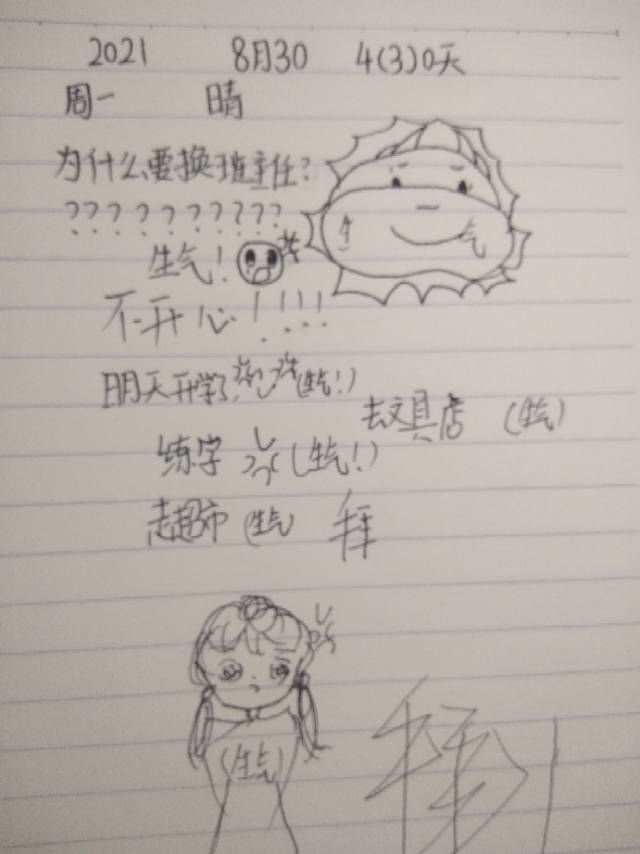 2021 8月30 4(3)0天
周一 晴
为什么要换班主任?
??????????
生 气
生气!
不开心!!!!
明天开学(生气!)
去文具店 (生气)
练字 (生气!)
去超市 (生气)
拜
(生气)
拜